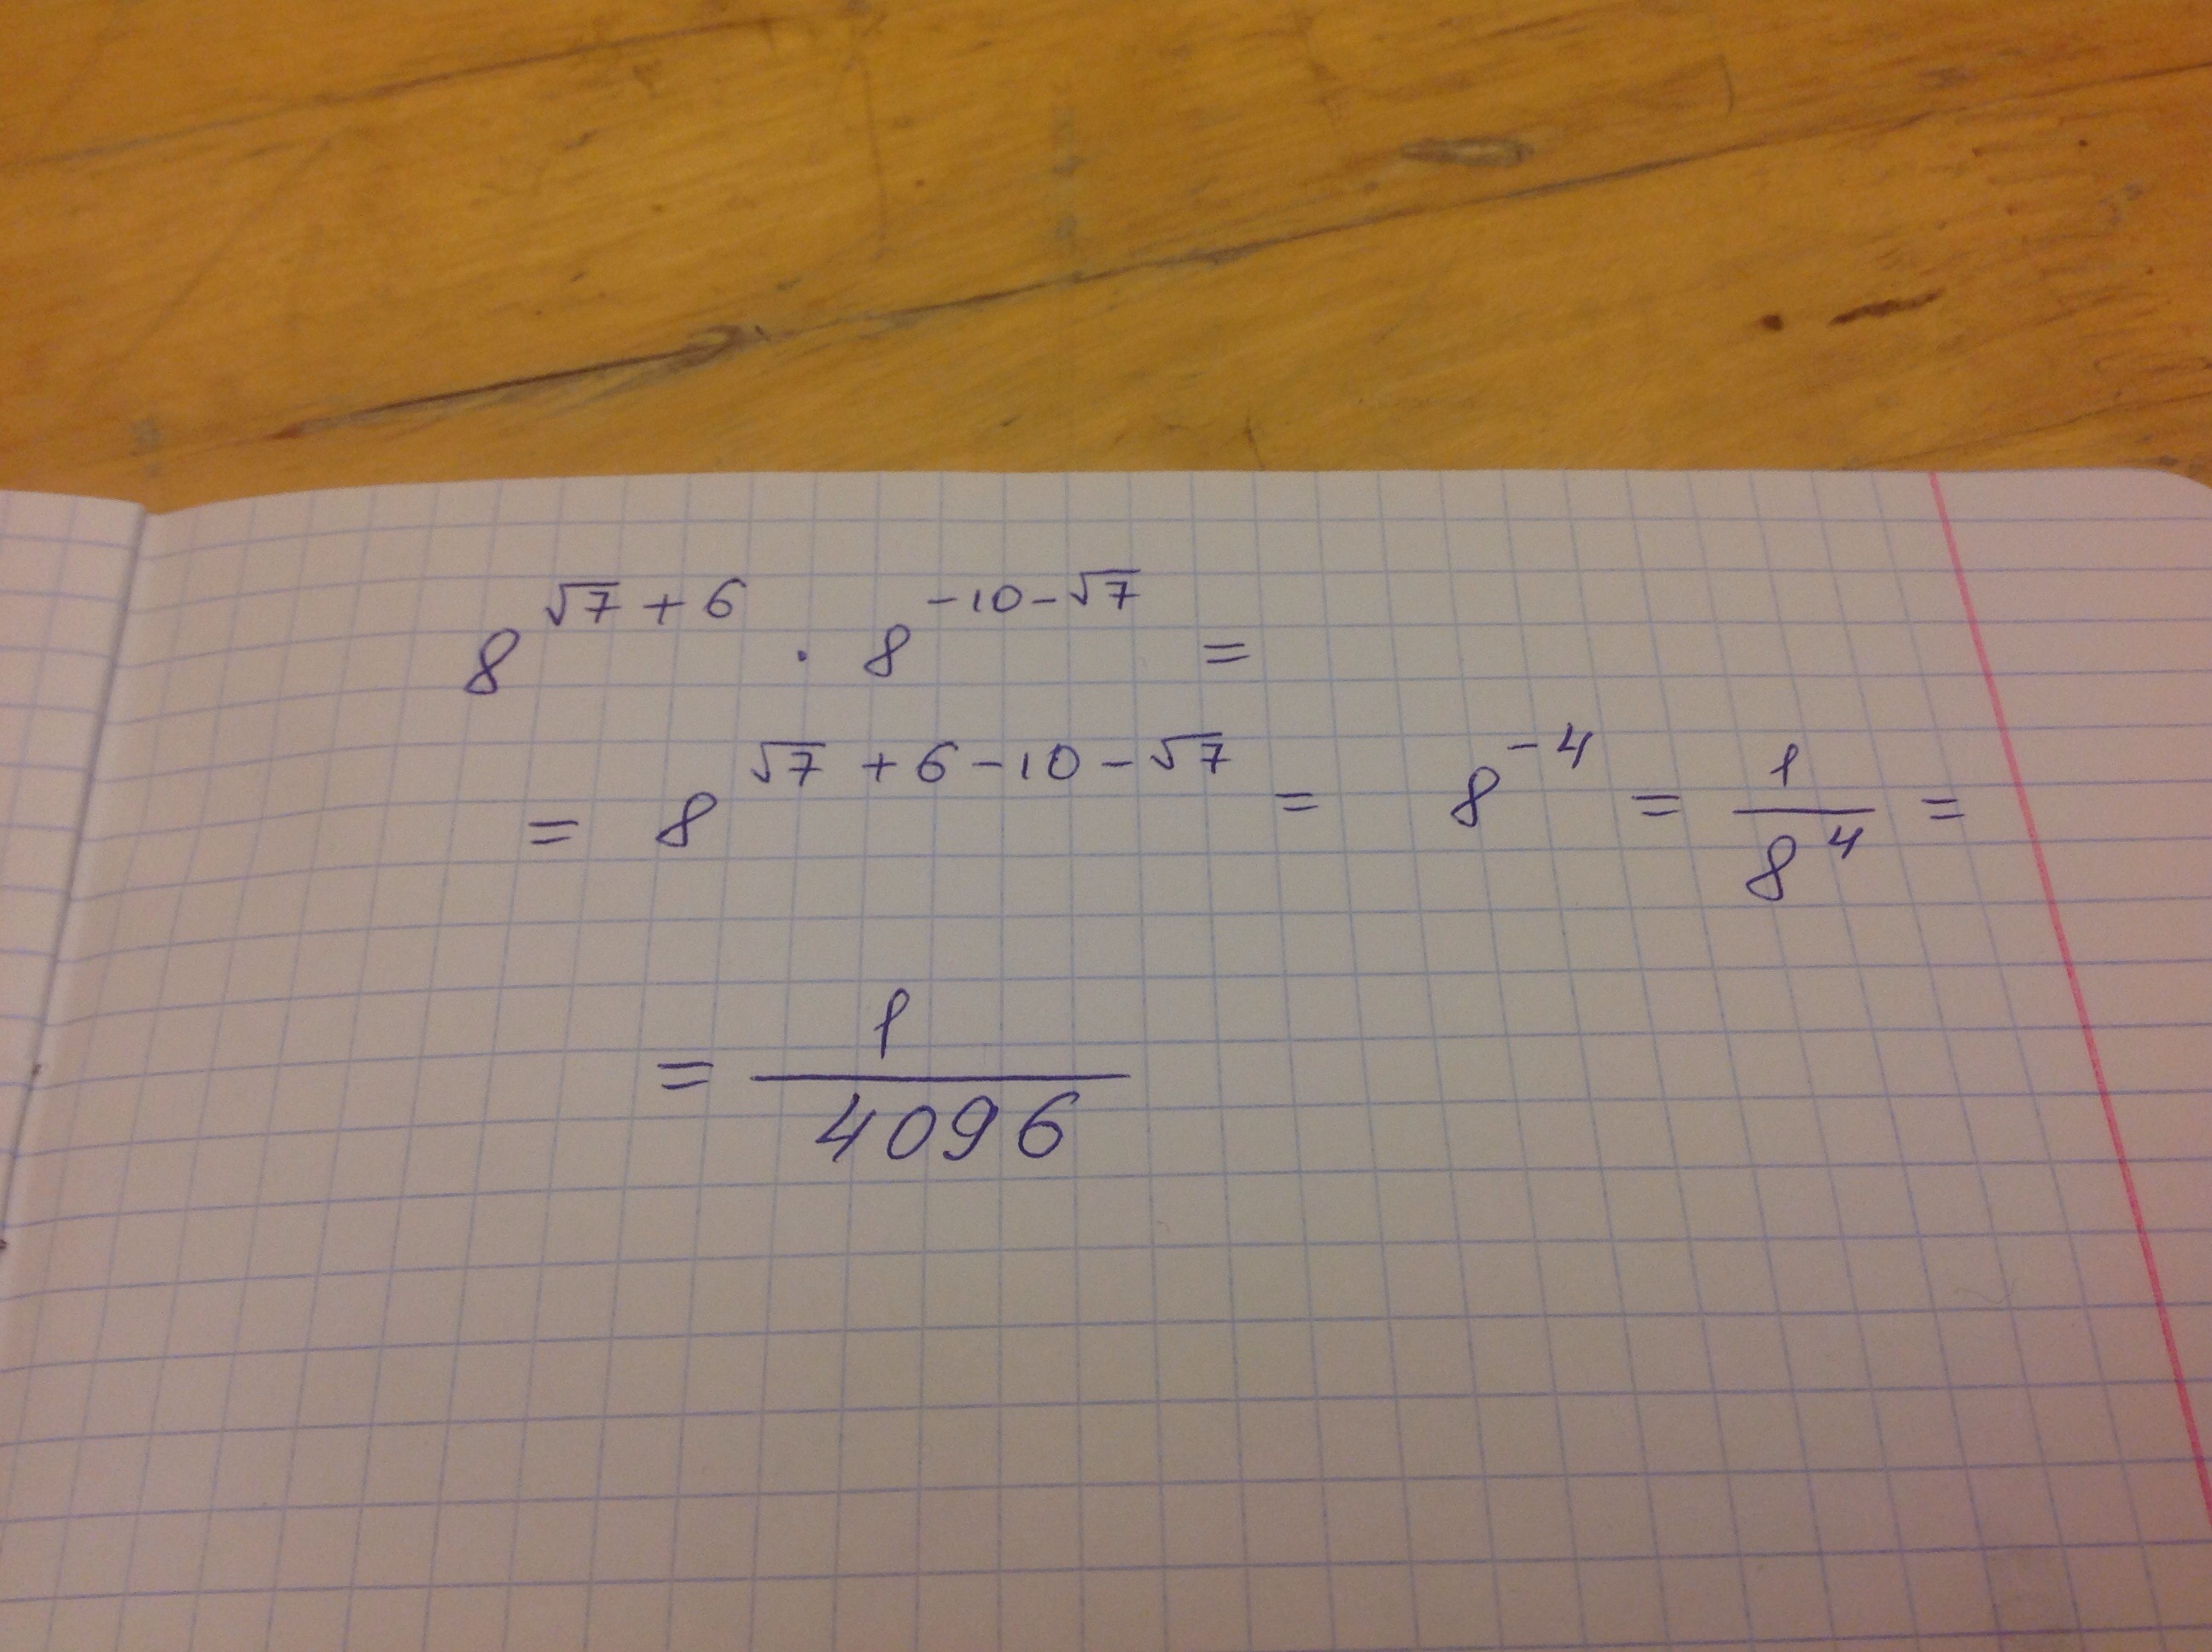 8^{√7 + 6} · 8^{-10-√7} =
= 8^{√7 + 6 - 10 - √7} = 8^{-4} = \frac{1}{8^4} =
= \frac{1}{4096}